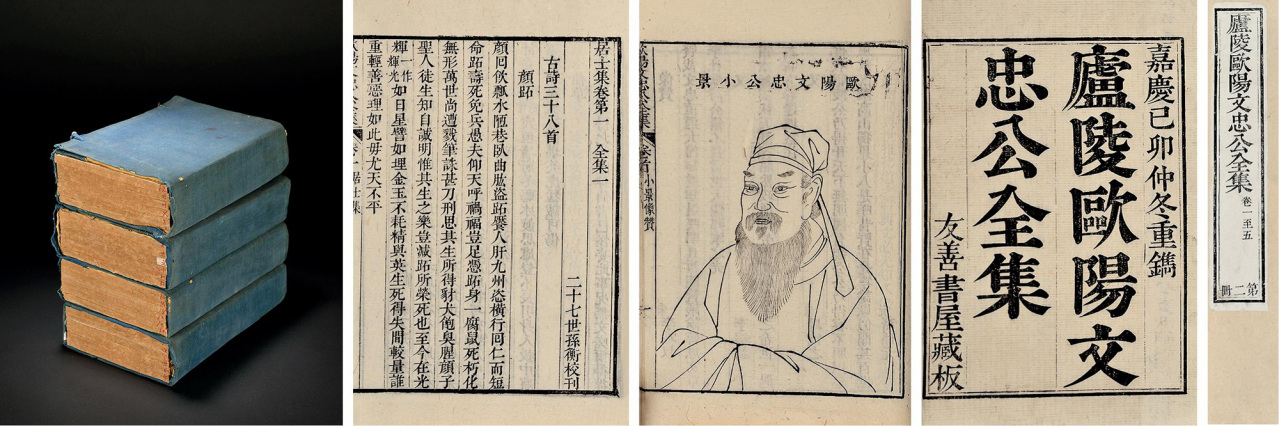 居士集卷第一 全集一
二十七世孫衡校刊
古詩三十八首
顏跖
顏回飲瓢水陋巷臥曲肱盜跖饜人肝九州恣橫行回仁而短
命跖壽死免兵愚夫仰天呼禍福豈足憑跖身一腐鼠死朽化
無形萬世尚遭戮筆誅甚刀刑思其生所得豺犬飽臭腥顏子
聖人徒生知自誡明惟其生之樂豈減跖所榮死也至今在光
輝一作輝光如日星譬如埋金玉不耗精與英生死得失間較量誰
重輕善惡理如此毋尤天不平
歐陽文忠公小景
卷首 小景像贊
嘉慶己卯仲冬重鐫
廬陵歐陽文
忠公全集
友善書屋藏板
廬陵歐陽文忠公全集 卷一至五
第二冊